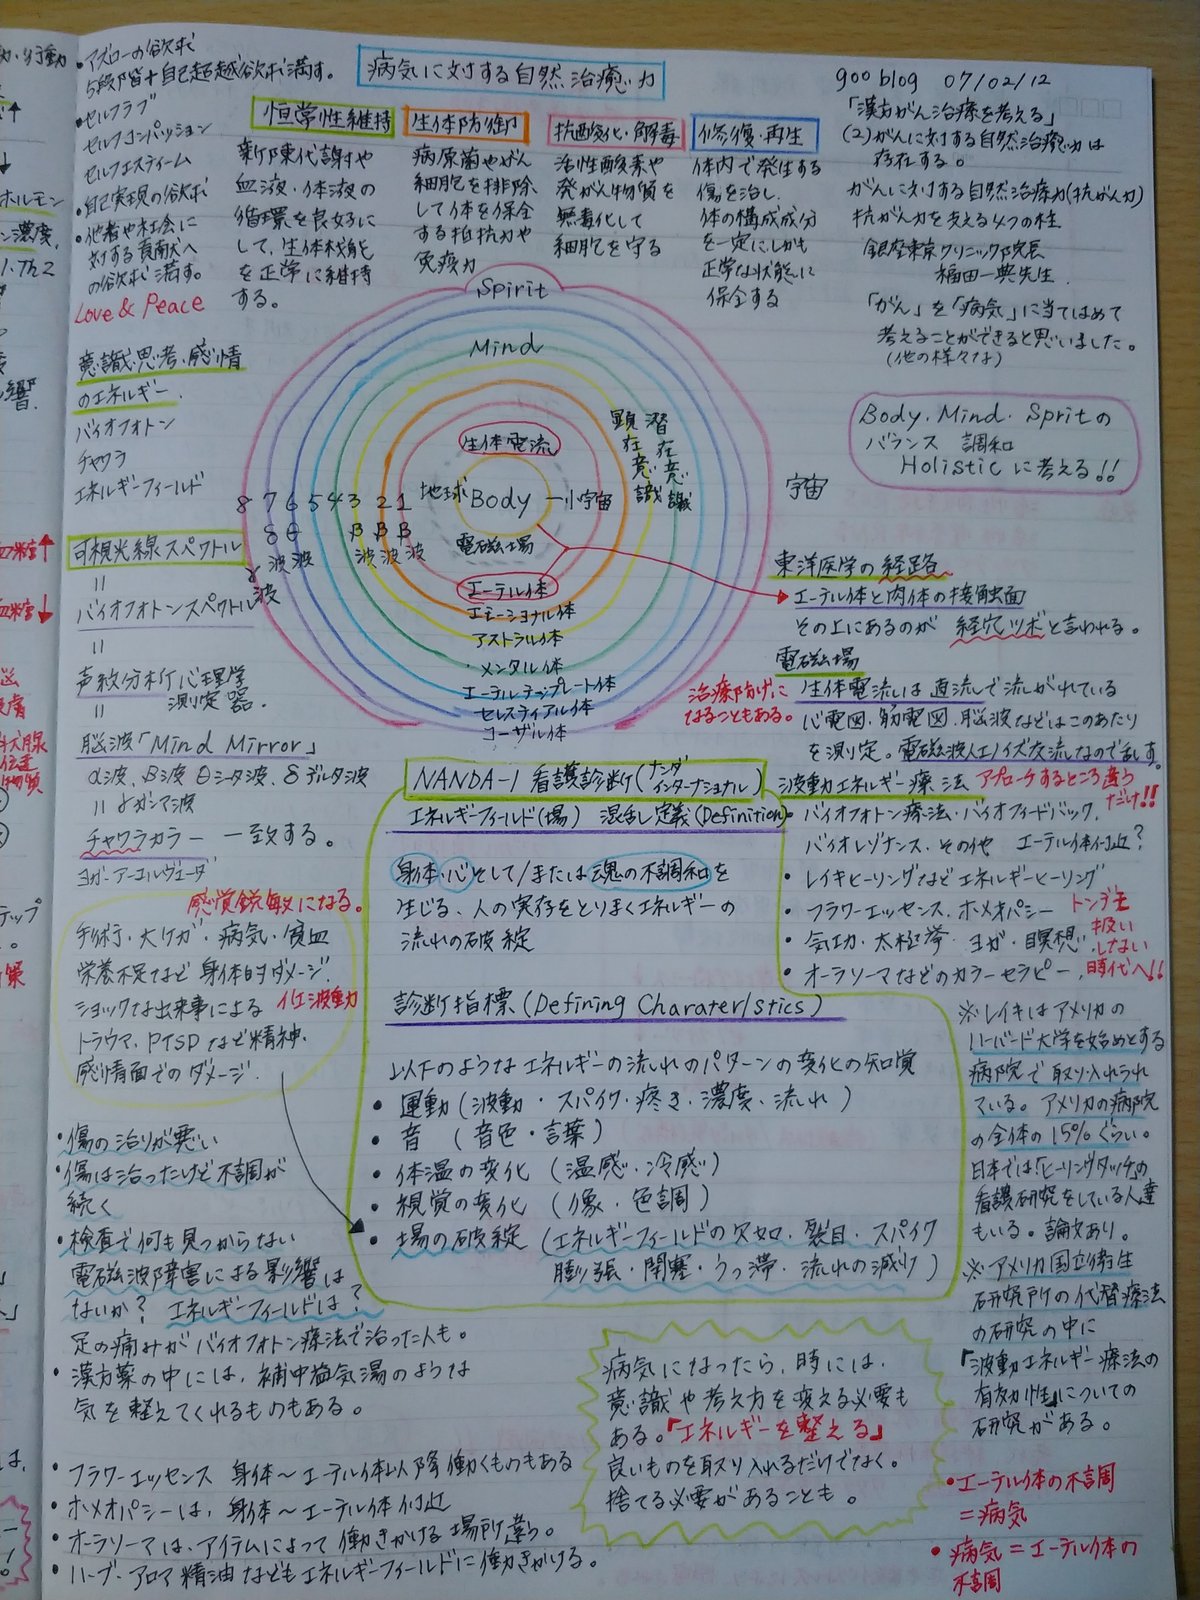 ・マズローの欲求
5段階+自己超越欲求満す。
・セルフラブ
セルフコンパッション
セルフエスティーム
・自己実現の欲求
・他者や社会に
対する貢献へ
の欲求満す。
Love & Peace
病気に対する自然治癒力
goo blog 07/02/12
恒常性維持
新陳代謝や
血液・体液の
循環を良好に
して、生体機能
を正常に維持
する。
生体防御
病原菌やがん
細胞を排除
して体を保全
する抵抗力や
免疫力
抗酸化・解毒
活性酸素や
発がん物質を
無毒化して
細胞を守る
修復・再生
体内で発生する
傷を治し、
体の構成成分
を一定にしかも
正常な状態に
保全する
「漢方がん治療を考える」
(2)がんに対する自然治癒力は
存在する。
がんに対する自然治療力(抗がん力)
抗がん力を支える4つの柱
銀座東京クリニック院長
福田一典先生
「がん」を「病気」に当てはめて
考えることができると思いました。
(他の様々な)
Body、Mind・Spritの
バランス 調和
Holisticに考える!!
意識・思考・感情
のエネルギー
バイオフォトン
チャクラ
エネルギーフィールド
可視光線スペクトル
=
バイオフォトンスペクトル
=
声紋分析心理学
測定器。
=
脳波「Mind Mirror」
α波、β波 θシータ波、δデルタ波
=γガンマ波
チャクラカラー 一致する。
ヨガ・アーユルヴェーダ
Spirit
Mind
顕在意識
潜在意識
生体電流
地球 Body 小宇宙
宇宙
8 7 6 5 4 3 2 1
δ θ β β β
γ波 波 波 波 波 波
電磁場
エーテル体
エモーショナル体
アストラル体
メンタル体
エーテルテンプレート体
セレスティアル体
コーザル体
東洋医学の経路
エーテル体と肉体の接触面
その上にあるのが 経穴ツボと言われる。
電磁場
生体電流は直流で流がれている
心電図、筋電図、脳波などはこのあたり
を測定。電磁波人工ノイズ交流なので乱す。
治療防げに
なることもある。
波動エネルギー療法 アプローチするところ違う
だけ!!
・バイオフォトン療法・バイオフィードバック、
バイオレゾナンス、その他 エーテル体付近?
・レイキヒーリングなどエネルギーヒーリング
・フラワーエッセンス、ホメオパシー
・気功・太極拳・ヨガ・瞑想
・オーラソーマなどのカラーセラピー、
トンデモ
扱い
しない
時代へ!!
NANDA-I 看護診断(ナンダインターナショナル)
エネルギーフィールド(場) 混乱 定義(Definition)
身体・心そして/または魂の不調和を
生じる、人の実存をとりまくエネルギーの
流れの破綻
診断指標(Defining Charateristics)
以下のようなエネルギーの流れのパターンの変化の知覚
・運動(波動・スパイク・疼き・濃度・流れ)
・音 (音色・言葉)
・体温の変化 (温感・冷感)
・視覚の変化 (像・色調)
・場の破綻 (エネルギーフィールドの欠如・裂目・スパイク
膨張・閉塞・うっ滞・流れの減少)
感覚鋭敏になる。
手術・大ケガ・病気・貧血
栄養不足など身体的ダメージ
ショックな出来事による
低波動
トラウマ、PTSDなど精神・
感情面でのダメージ
・傷の治りが悪い
・傷は治ったけど不調が
続く
・検査で何も見つからない
電磁波障害による影響は
ないか? エネルギーフィールドは?
足の痛みがバイオフォトン療法で治った人も。
・漢方薬の中には、補中益気湯のような
気を整えてくれるものもある。
・フラワーエッセンス 身体〜エーテル体以降働くものもある
・ホメオパシーは、身体〜エーテル体付近
・オーラソーマは、アイテムによって働きかける場所違う。
・ハーブ・アロマ精油などもエネルギーフィールドに働きかける。
病気になったら、時には、
意識や考え方を変える必要も
ある。『エネルギーを整える』
良いものを取り入れるだけでなく。
捨てる必要があることも。
※レイキはアメリカの
ハーバード大学を始めとする
病院で取り入れられ
ている。アメリカの病院
の全体の15%ぐらい。
日本では「ヒーリングタッチ」の
看護研究をしている人達
もいる。論文あり。
※アメリカ国立衛生
研究所の代替療法
の研究の中に
「波動エネルギー療法の
有効性」についての
研究がある。
・エーテル体の不調
=病気
・病気=エーテル体の
不調